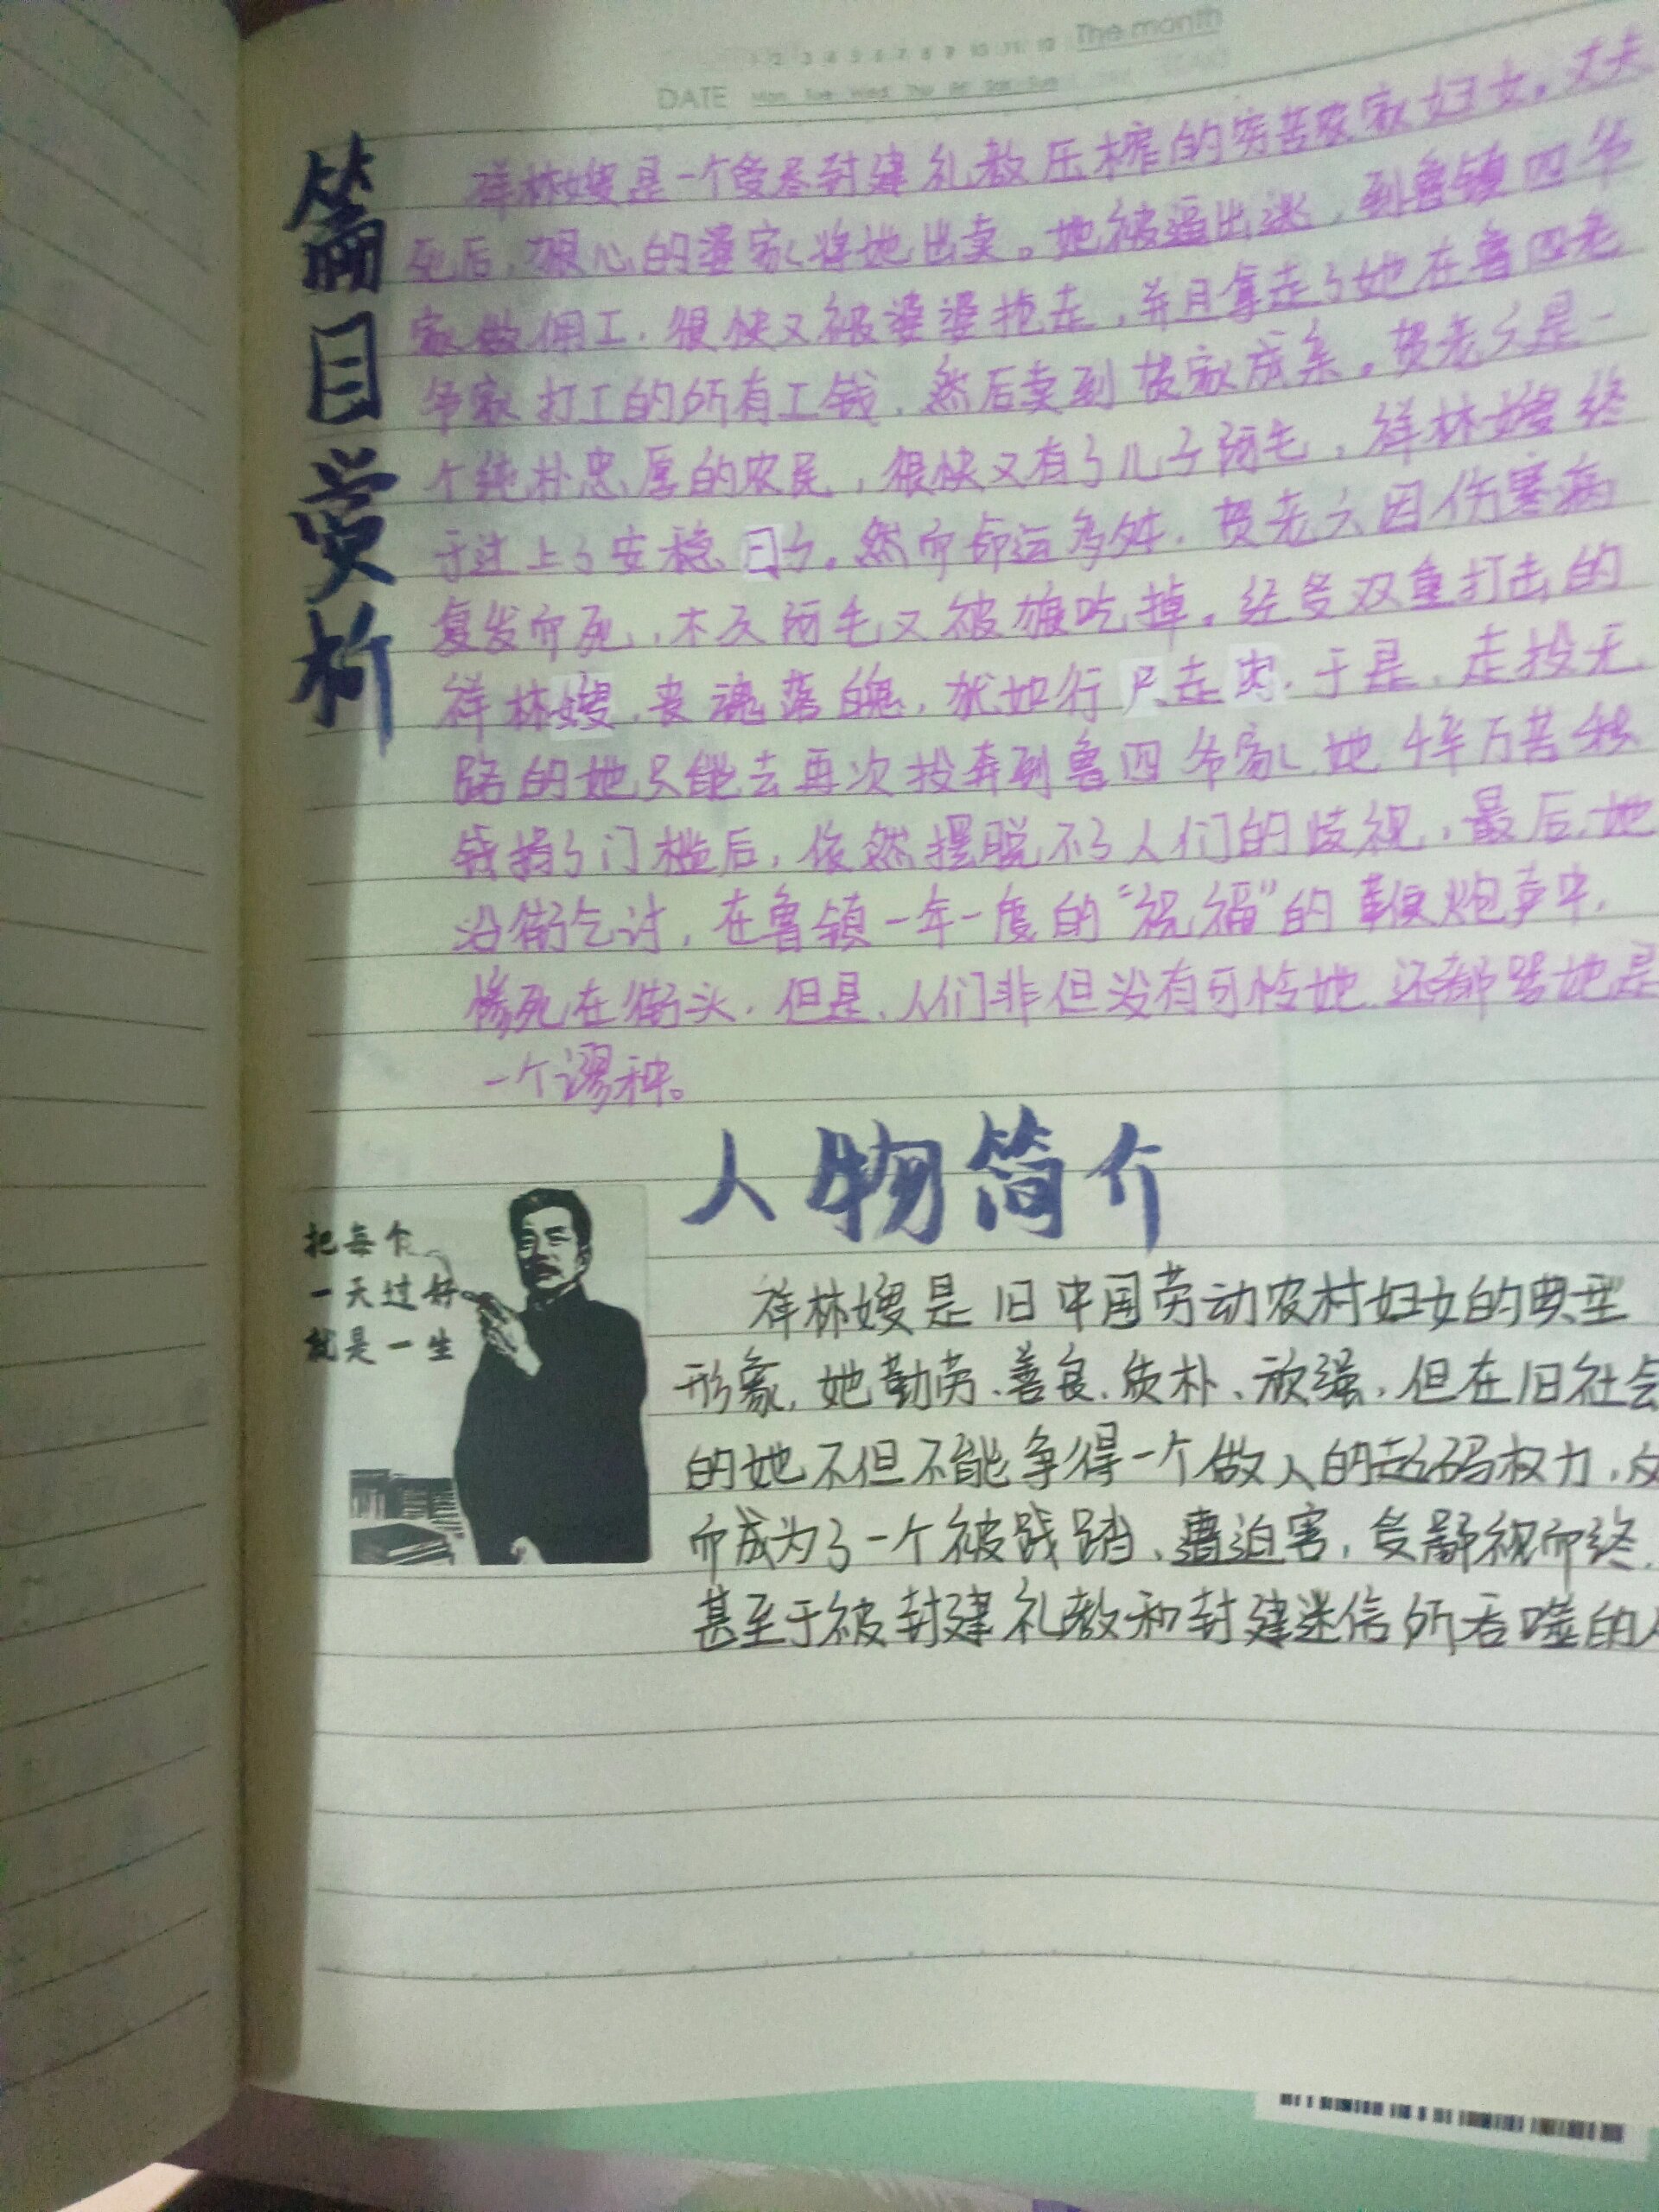 1 2 3 4 5 6 7 8 9 10 11 12 The month
DATE Mon Tue Wed Thu Fri Sat Sun
篇目赏析
祥林嫂是一个受尽封建礼教压榨的穷苦农家妇女。丈夫
死后,狠心的婆家将她出卖。她被逼出逃,到鲁镇四爷
家做佣工,很快又被婆婆抢走,并且拿走了她在鲁四老
爷家打工的所有工钱,然后卖到贺家成亲。贺老六是一
个纯朴忠厚的农民,很快又有了儿子阿毛,祥林嫂终
于过上了安稳日子。然而命运多舛,贺老六因伤寒病
复发而死,不久阿毛又被狼吃掉。经受双重打击的
祥林嫂,丧魂落魄,犹如行尸走肉。于是,走投无
路的她只能去再次投奔到鲁四爷家,她千辛万苦积
钱捐了门槛后,依然摆脱不了人们的歧视,最后,她
沿街乞讨,在鲁镇一年一度的“祝福”的鞭炮声中,
惨死在街头。但是,人们非但没有可怜她,还都骂她是
一个谬种。
人物简介
把每个
一天过好
就是一生
祥林嫂是旧中国劳动农村妇女的典型
形象,她勤劳、善良、质朴、顽强,但在旧社会
的她不但不能争得一个做人的起码权力,反
而成为了一个被践踏、遭迫害,受鄙视而终,
甚至于被封建礼教和封建迷信所吞噬的人